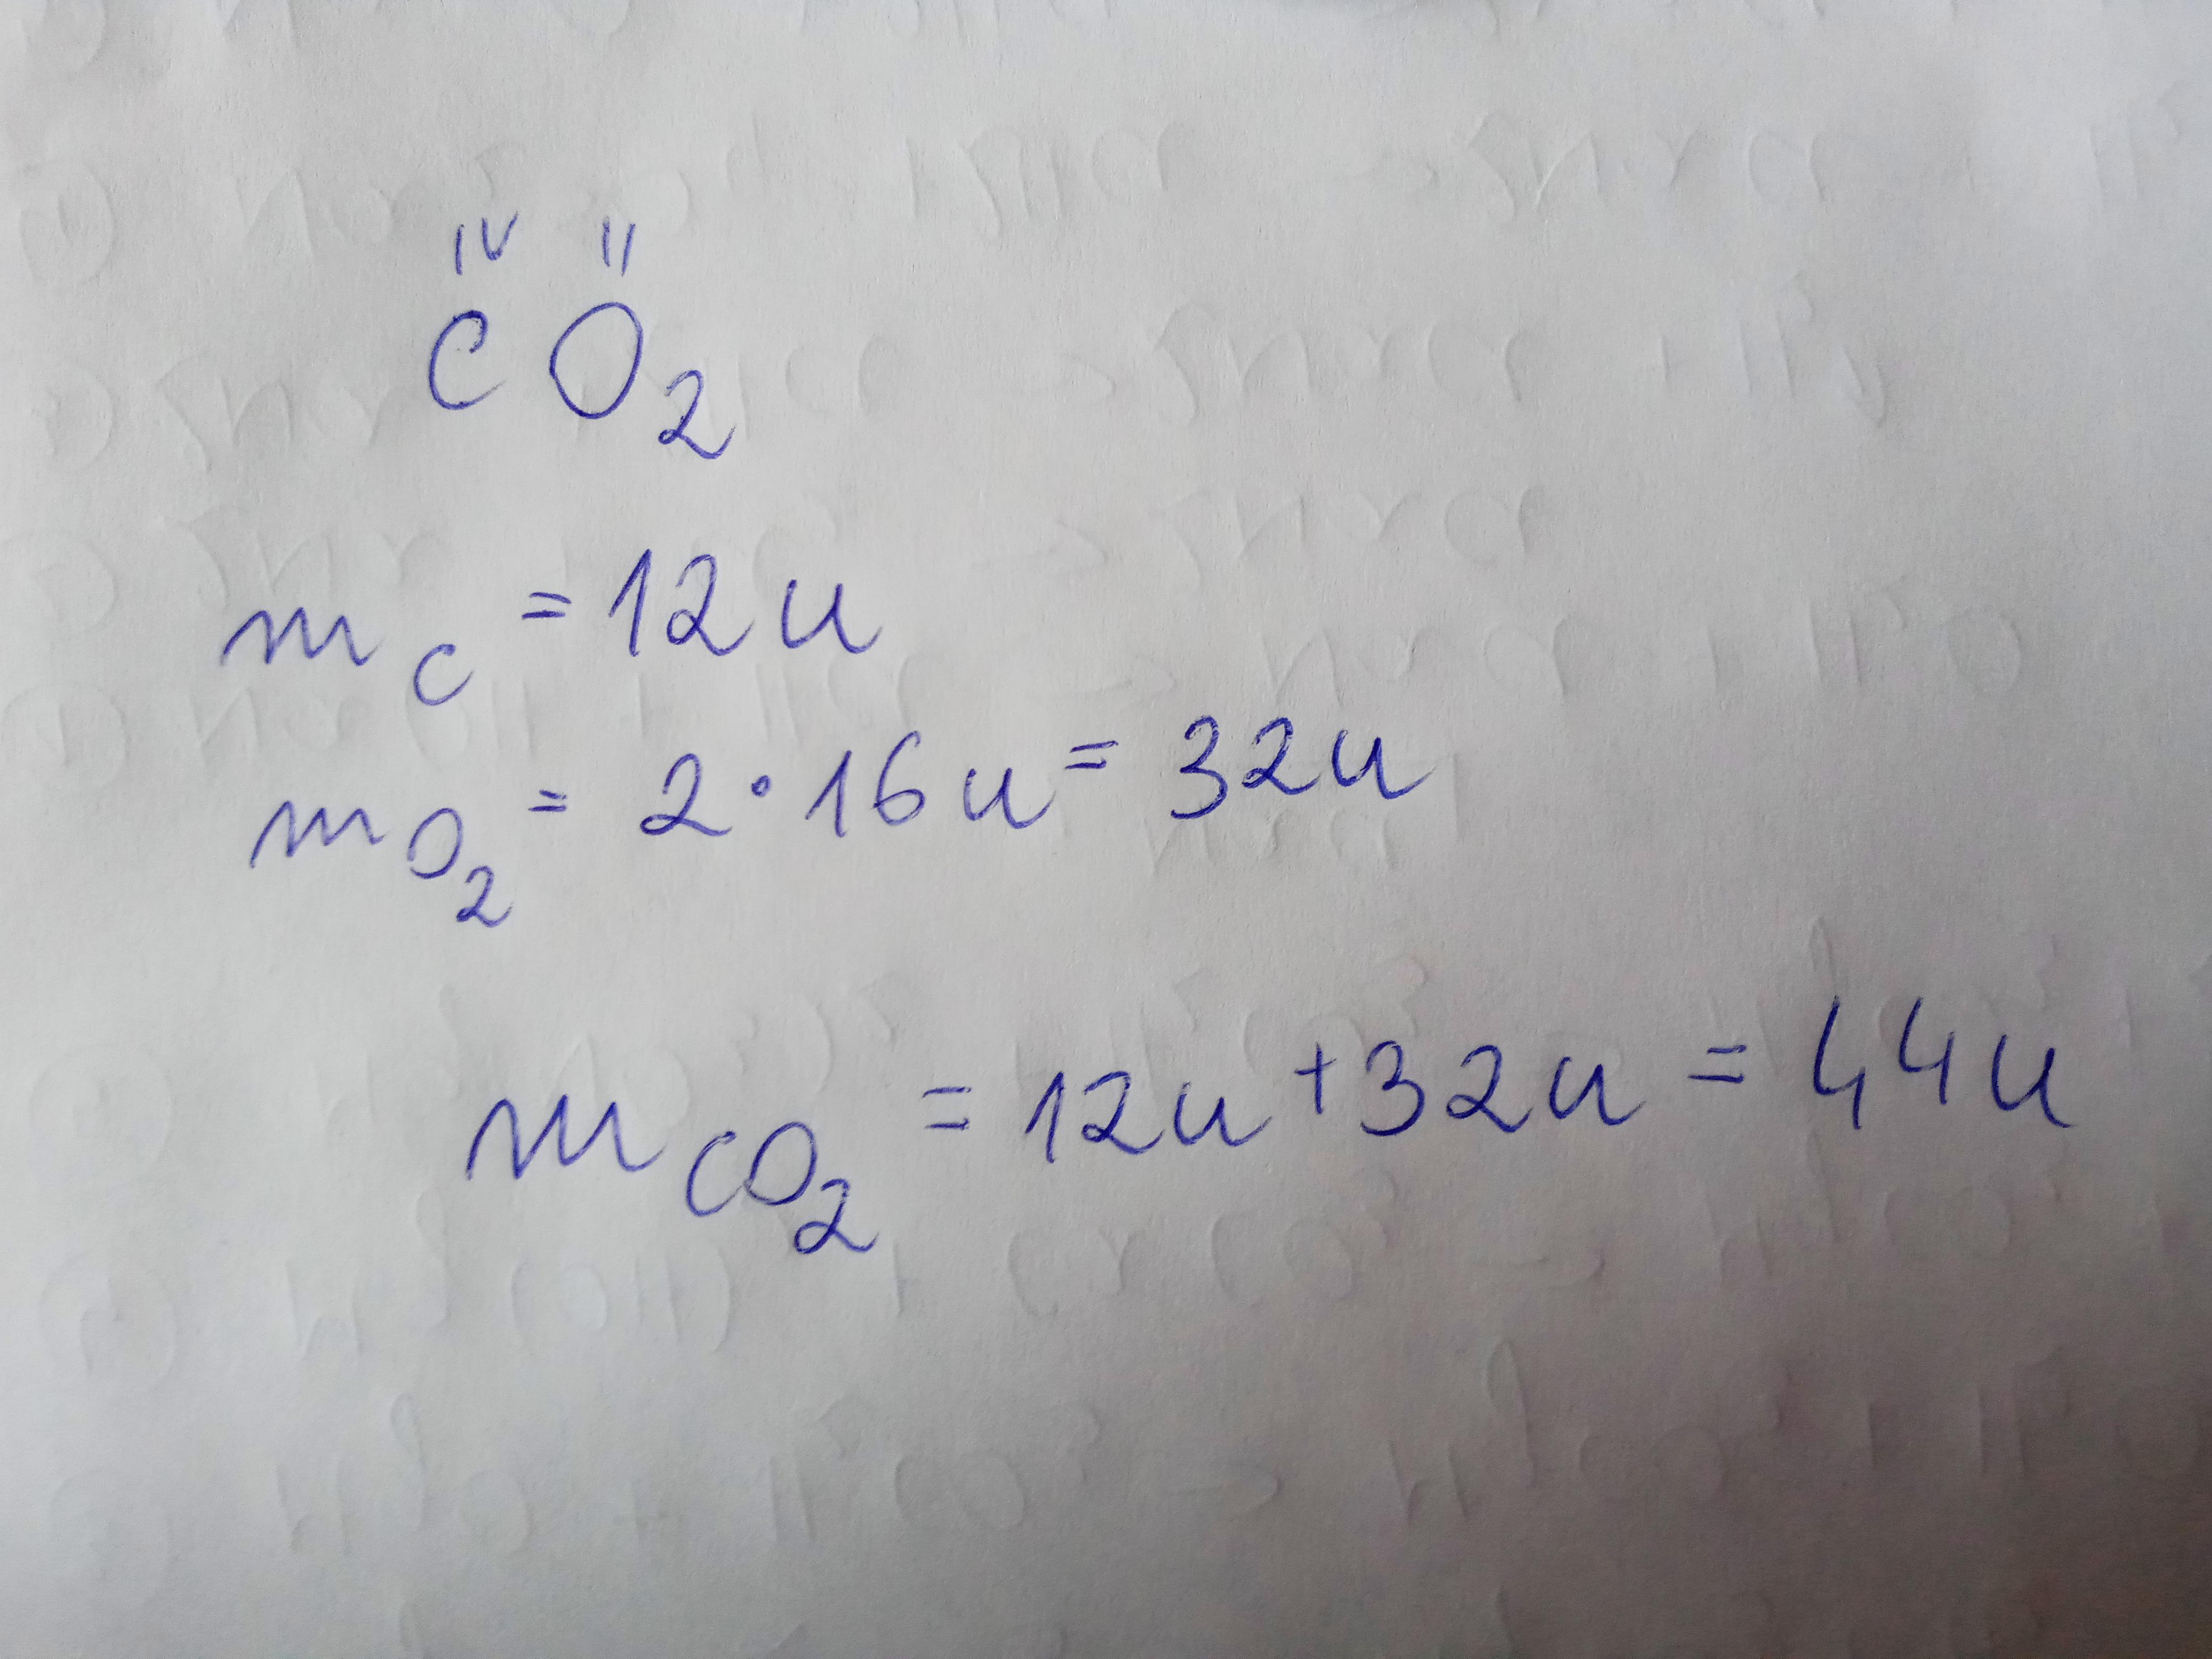 IV II
CO₂
m_C = 12u
m_O₂ = 2·16u = 32u
m_CO₂ = 12u+32u = 44u